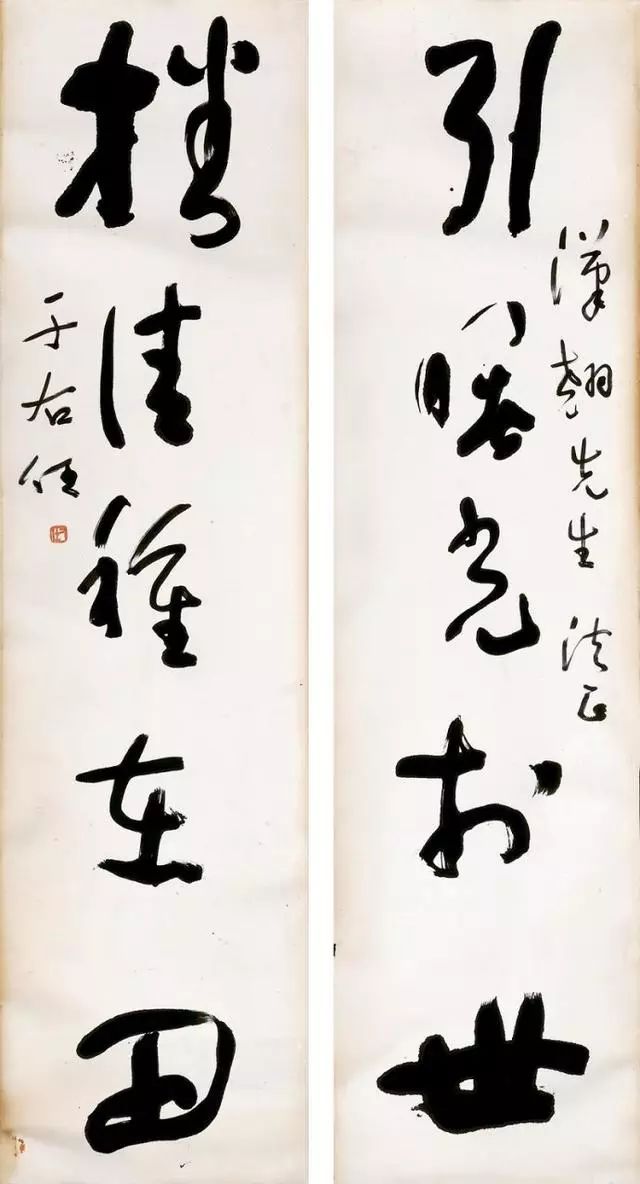 漢翹先生 法正
引曙光於世
播佳種在田
于右任